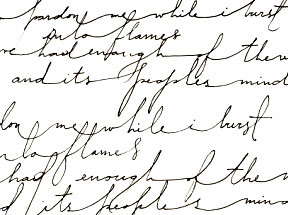 pardon me while i burst
into flames
ve had enough of the w
and its people's mind
don me while i burst
nto flames
had enough of the w
d its people's mind